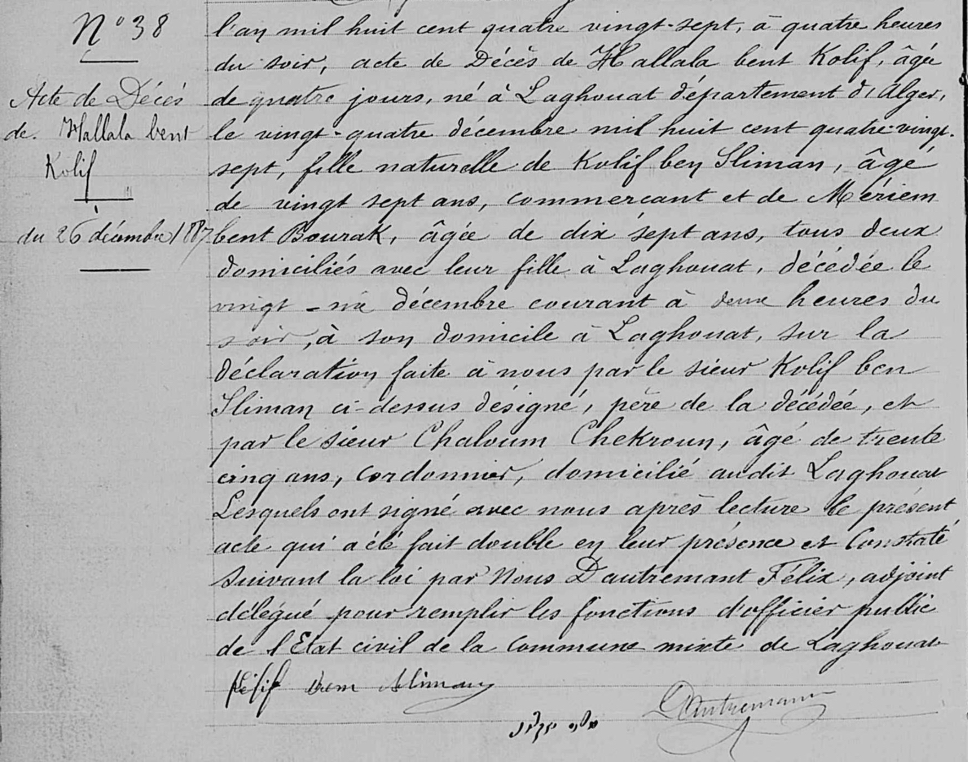 N° 38
Acte de Décès
de Hallala bent
Kolif
du 26 décembre 1887
l'an mil huit cent quatre vingt-sept, à quatre heures
du soir, acte de Décès de Hallala bent Kolif, âgée
de quatre jours, né à Laghouat département d'Alger,
le vingt-quatre décembre mil huit cent quatre-vingt-
sept, fille naturelle de Kolif ben Sliman, âgé
de vingt sept ans, commercant et de Mériem
bent Bourak, âgée de dix sept ans, tous deux
domiciliés avec leur fille à Laghouat, décédée le
vingt décembre courant à heures du
soir, à son domicile à Laghouat, sur la
déclaration faite à nous par le sieur Kolif ben
Sliman ci-dessus désigné, père de la décédée, et
par le sieur Chaloum Chekroun, âgé de trente
cinq ans, cordonnier, domicilié audit Laghouat
Lesquels ont signé avec nous après lecture le présent
acte qui a été fait double en leur présence et Constaté
suivant la loi par Nous Dautremant Félix, adjoint
délégué pour remplir les fonctions d'officier public
de l'Etat civil de la Commune mixte de Laghouat
Sliman
Dautremant